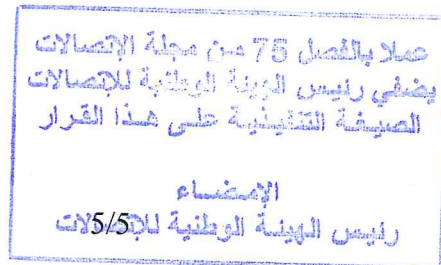 عملا بالفصل 75 من مجلة الإتصالات
يضفي رئيس الهيئة الوطنية للاتصالات
الصيغة التنفيذية على هذا القرار
الإمضاء
رئيس الهيئة الوطنية للإتصالات
5/5